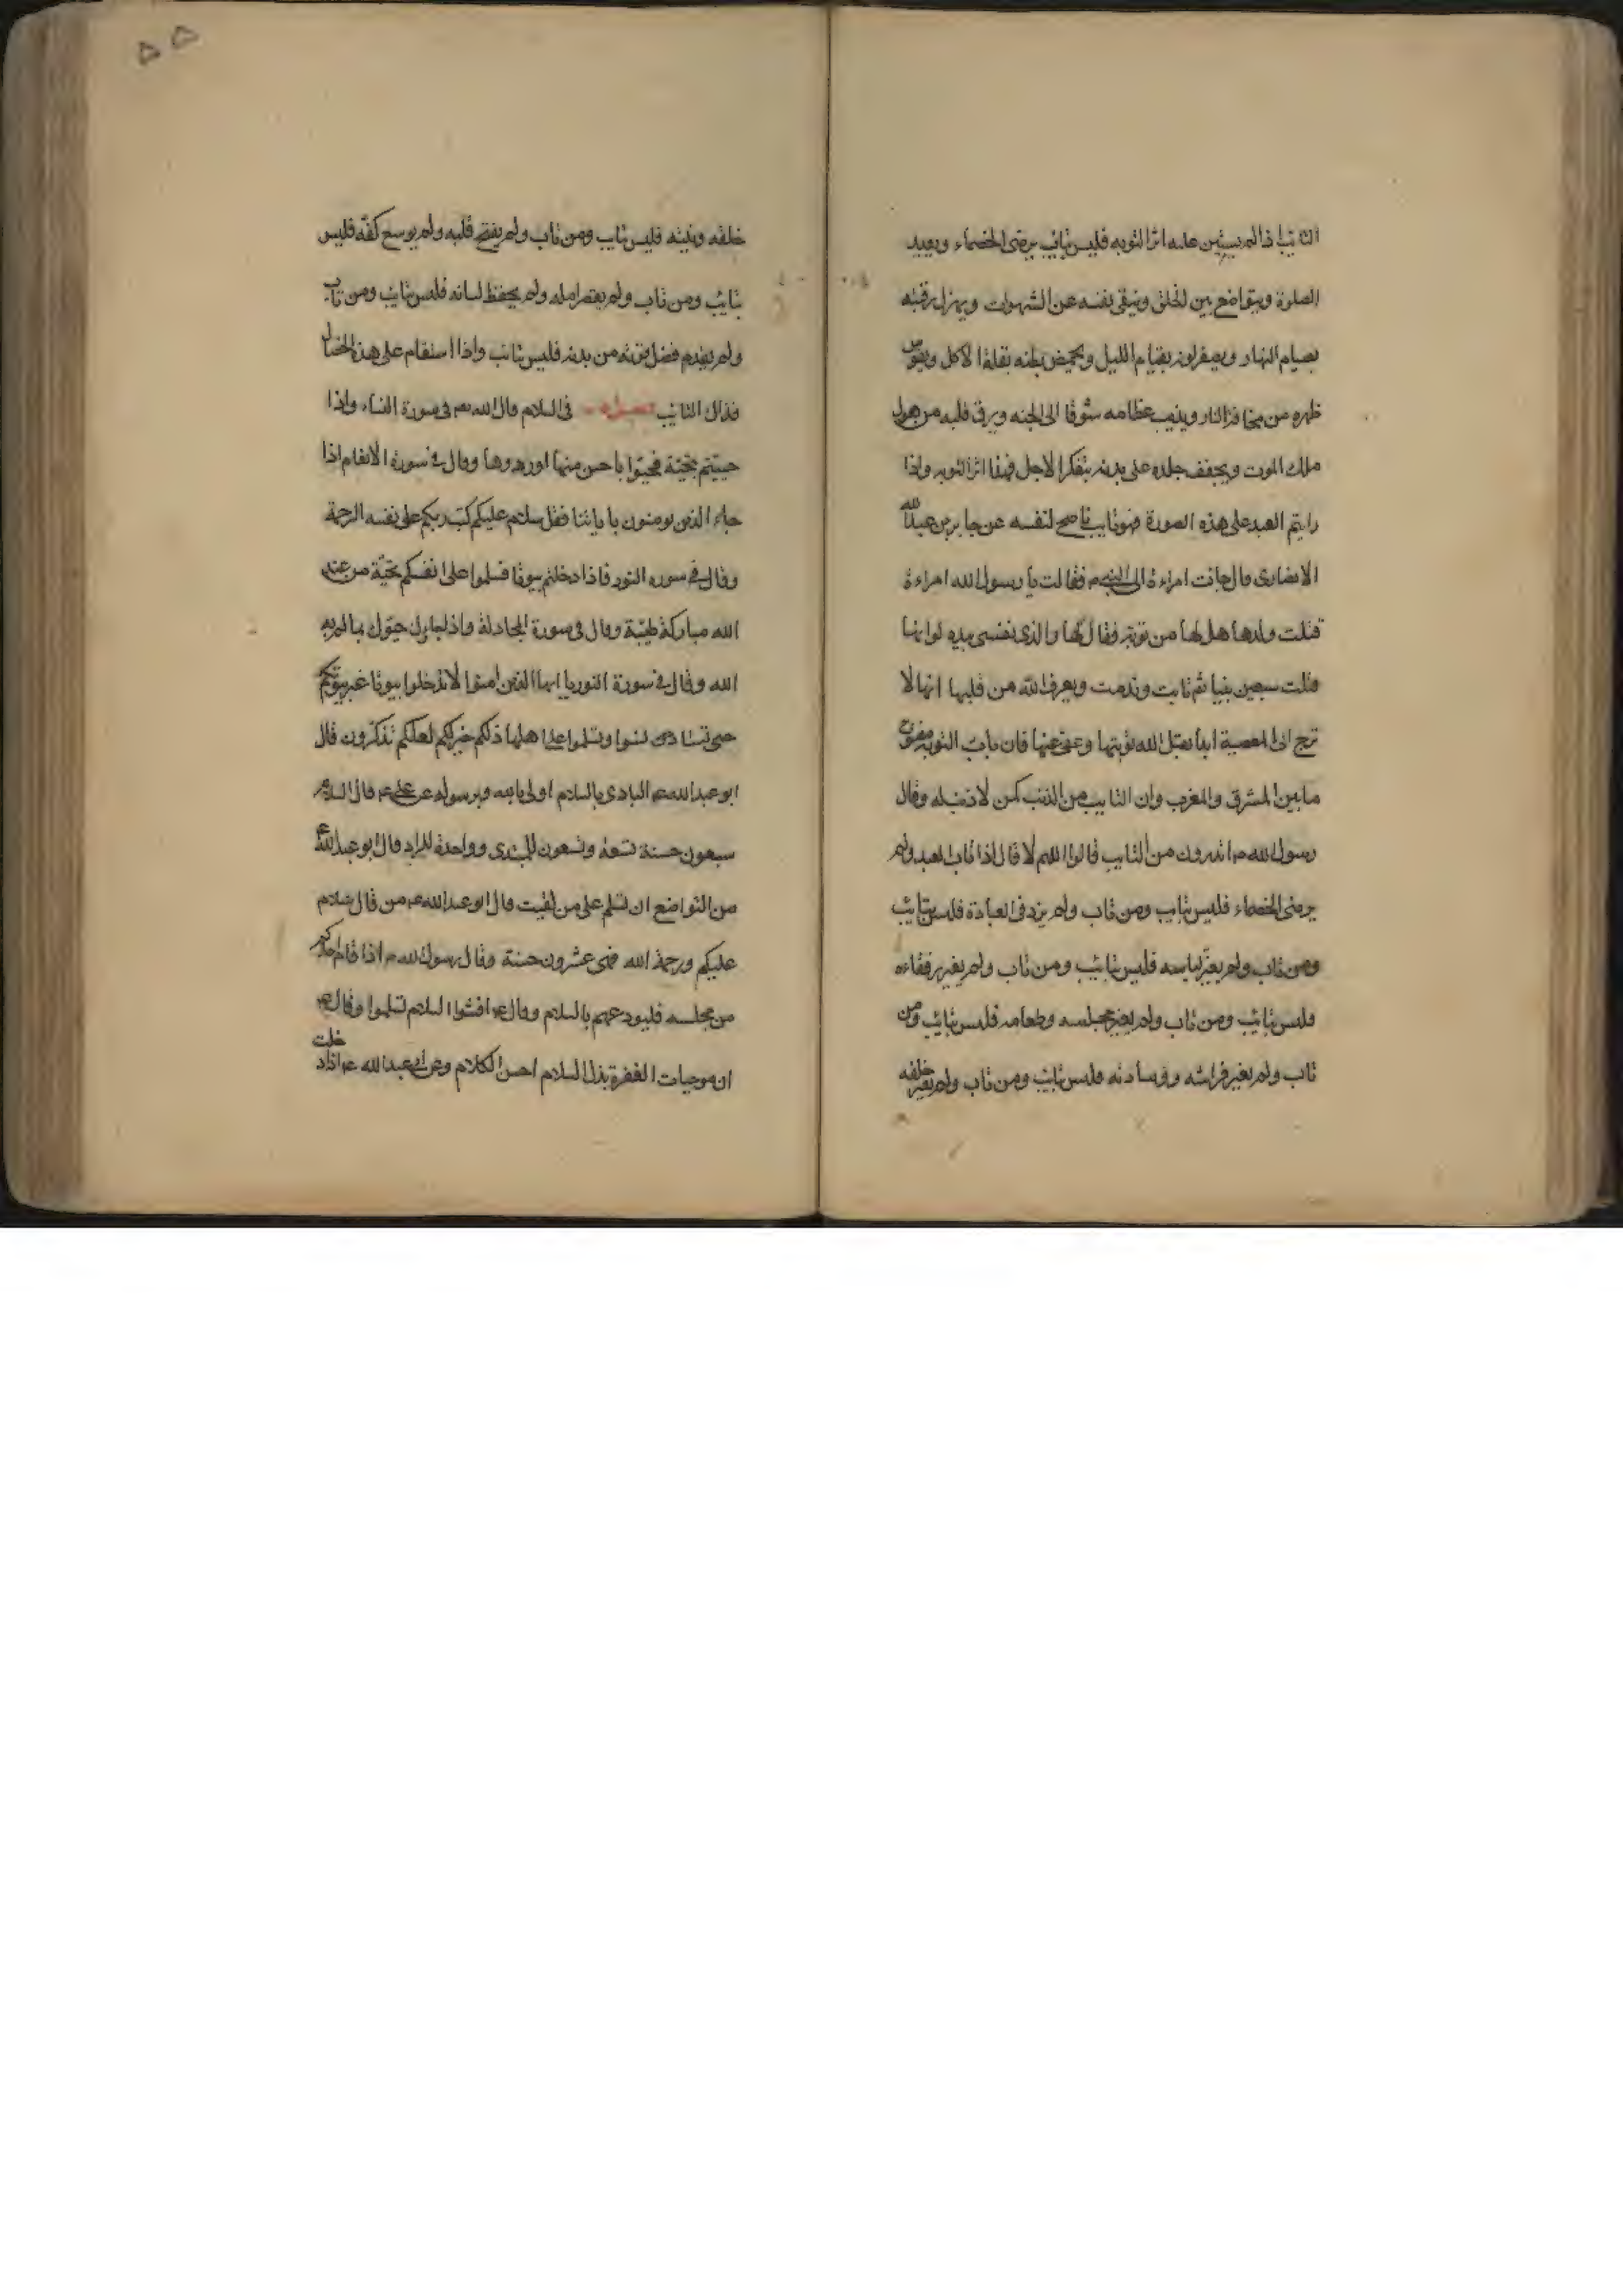 التائب اذا لم يستبن عليه اثر التوبه فليس بتائب يرضى الخصماء ويعيد
الصلوة ويتواضع بين الخلق ويتقى نفسه عن الشهوات ويهزل رقبته
بصيام النهار ويصفر لونه بقيام الليل ويخمص بطنه بقلة الاكل ويقوس
ظهره من مخافة النار ويذيب عظامه شوقا الى الجنه ويرق قلبه من هول
ملك الموت ويجفف جلده على بدنه بتفكر الاجل فهذا اثر التوبه واذا
رايتم العبد على هذه الصورة فهو تايب ناصح لنفسه عن جابر بن عبد الله
الانصارى قال جائت امراءة الى النبى ص فقالت يا رسول الله امراءة
قتلت ولدها هل لها من توبة فقال لها والذى نفسى بيده لو انها
قتلت سبعين نبيا ثم تابت وندمت ويعرف الله من قلبها انها لا
ترجع الى المعصية ابدا يقبل الله توبتها وعفى عنها فان باب التوبه مفتوح
ما بين المشرق والمغرب وان التايب من الذنب كمن لا ذنب له وقال
رسول الله ص اتدرون من التايب قالوا اللهم لا قال اذا تاب العبد ولم
يرضى الخصماء فليس بتايب ومن تاب ولم يزد فى العبادة فليس بتايب
ومن تاب ولم يغير لباسه فليس بتايب ومن تاب ولم يغير رفقاءه
فليس بتايب ومن تاب ولم يغير مجلسه وطعامه فليس بتايب ومن
تاب ولم يغير فراشه ووسادته فليس بتايب ومن تاب ولم يغير خلقه
٥٥
خلقه ونيته فليس بتايب ومن تاب ولم يفتح قلبه ولم يوسع كفه فليس
بتايب ومن تاب ولم يقصر امله ولم يحفظ لسانه فليس بتايب ومن تاب
ولم يقدم فضل قوته من بدنه فليس بتائب واذا استقام على هذه الخصال
فذاك التايب فى السلام قال الله تع فى سورة النساء واذا
حييتم بتحية فحيوا باحسن منها او ردوها وقال فى سورة الانعام اذا
جاءك الذين يومنون باياتنا فقل سلام عليكم كتب ربكم على نفسه الرحمة
وقال فى سوره النور فاذا دخلتم بيوتا فسلموا على انفسكم تحية من عند
الله مباركة طيبة وقال فى سورة المجادلة واذا جاؤك حيوك بما لم يحيك به
الله وقال فى سورة النور يا ايها الذين امنوا لا تدخلوا بيوتا غير بيوتكم
حتى تستانسوا وتسلموا على اهلها ذلكم خير لكم لعلكم تذكرون قال
ابو عبد الله ع البادى بالسلام اولى بالله وبرسوله عن على ع قال السلام
سبعون حسنة تسعة وتسعون للمبتدى وواحدة للراد قال ابو عبد الله ع
من التواضع ان تسلم على من لقيت قال ابو عبد الله ع من قال سلام
عليكم ورحمة الله فهى عشرون حسنة وقال رسول الله ص اذا قام احدكم
من مجلسه فليودعهم بالسلام وقال ع افشوا السلام تسلموا وقال ع
ان موجبات المغفرة بذل السلام احسن الكلام وعن ابى عبد الله ع اذا